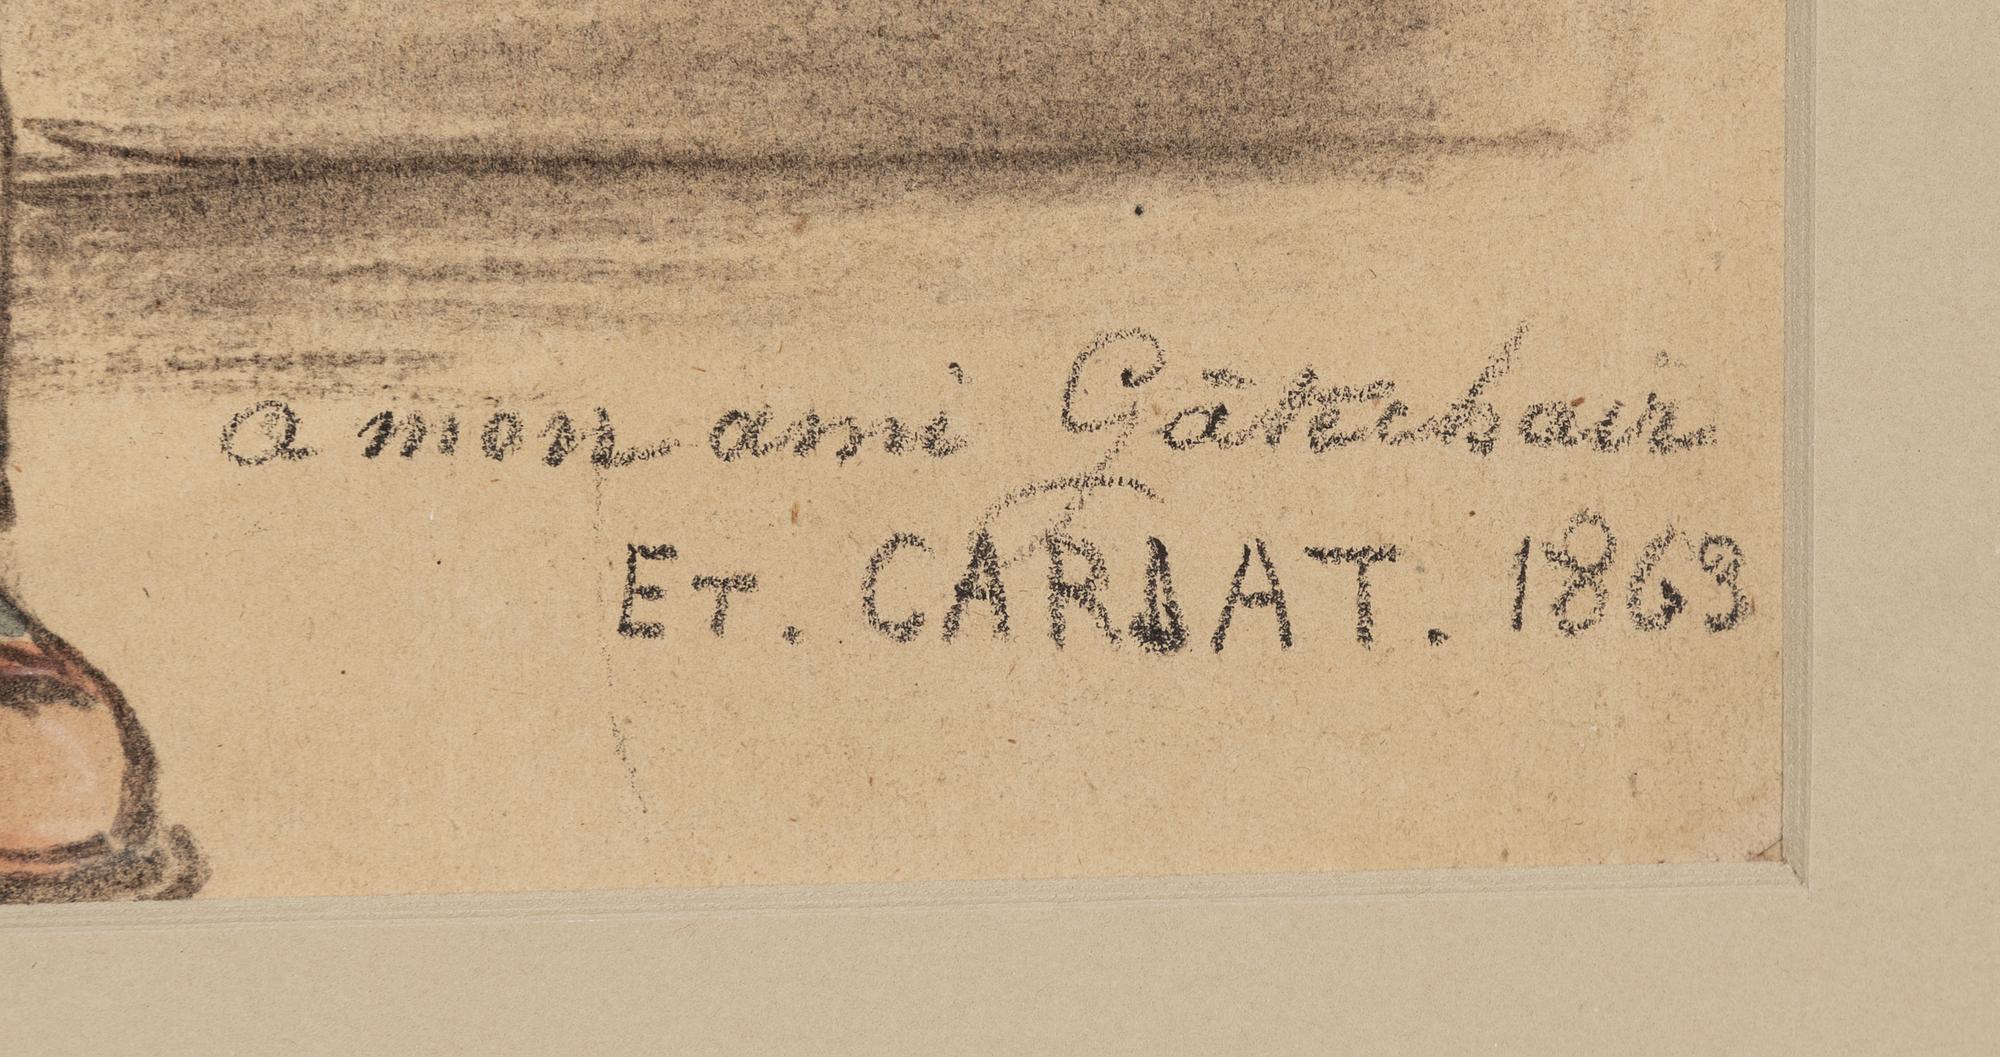 a mon ami Gâtechair
ET. CARJAT. 1863